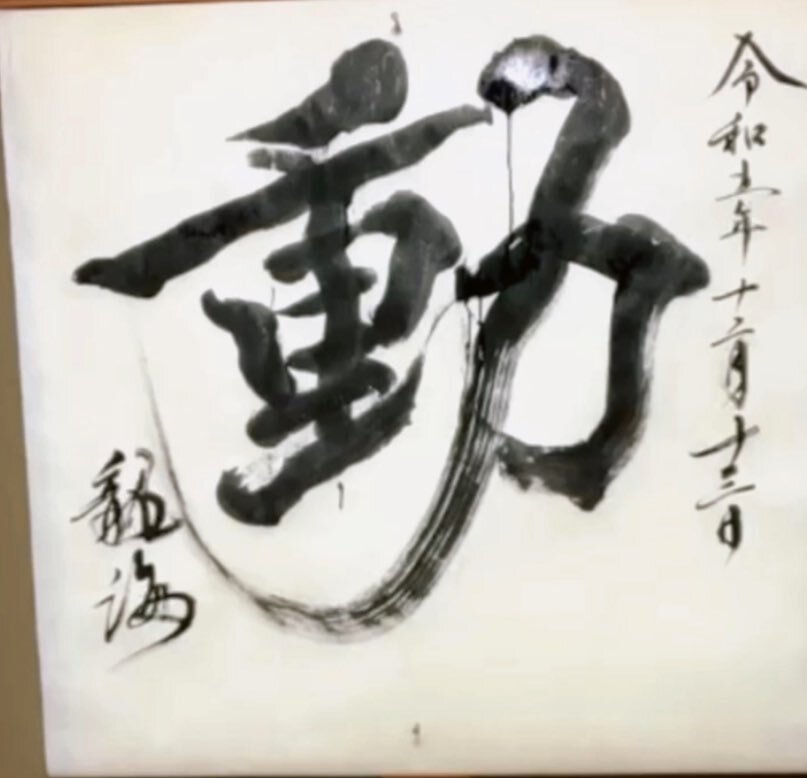 令和五年十二月十三日
動